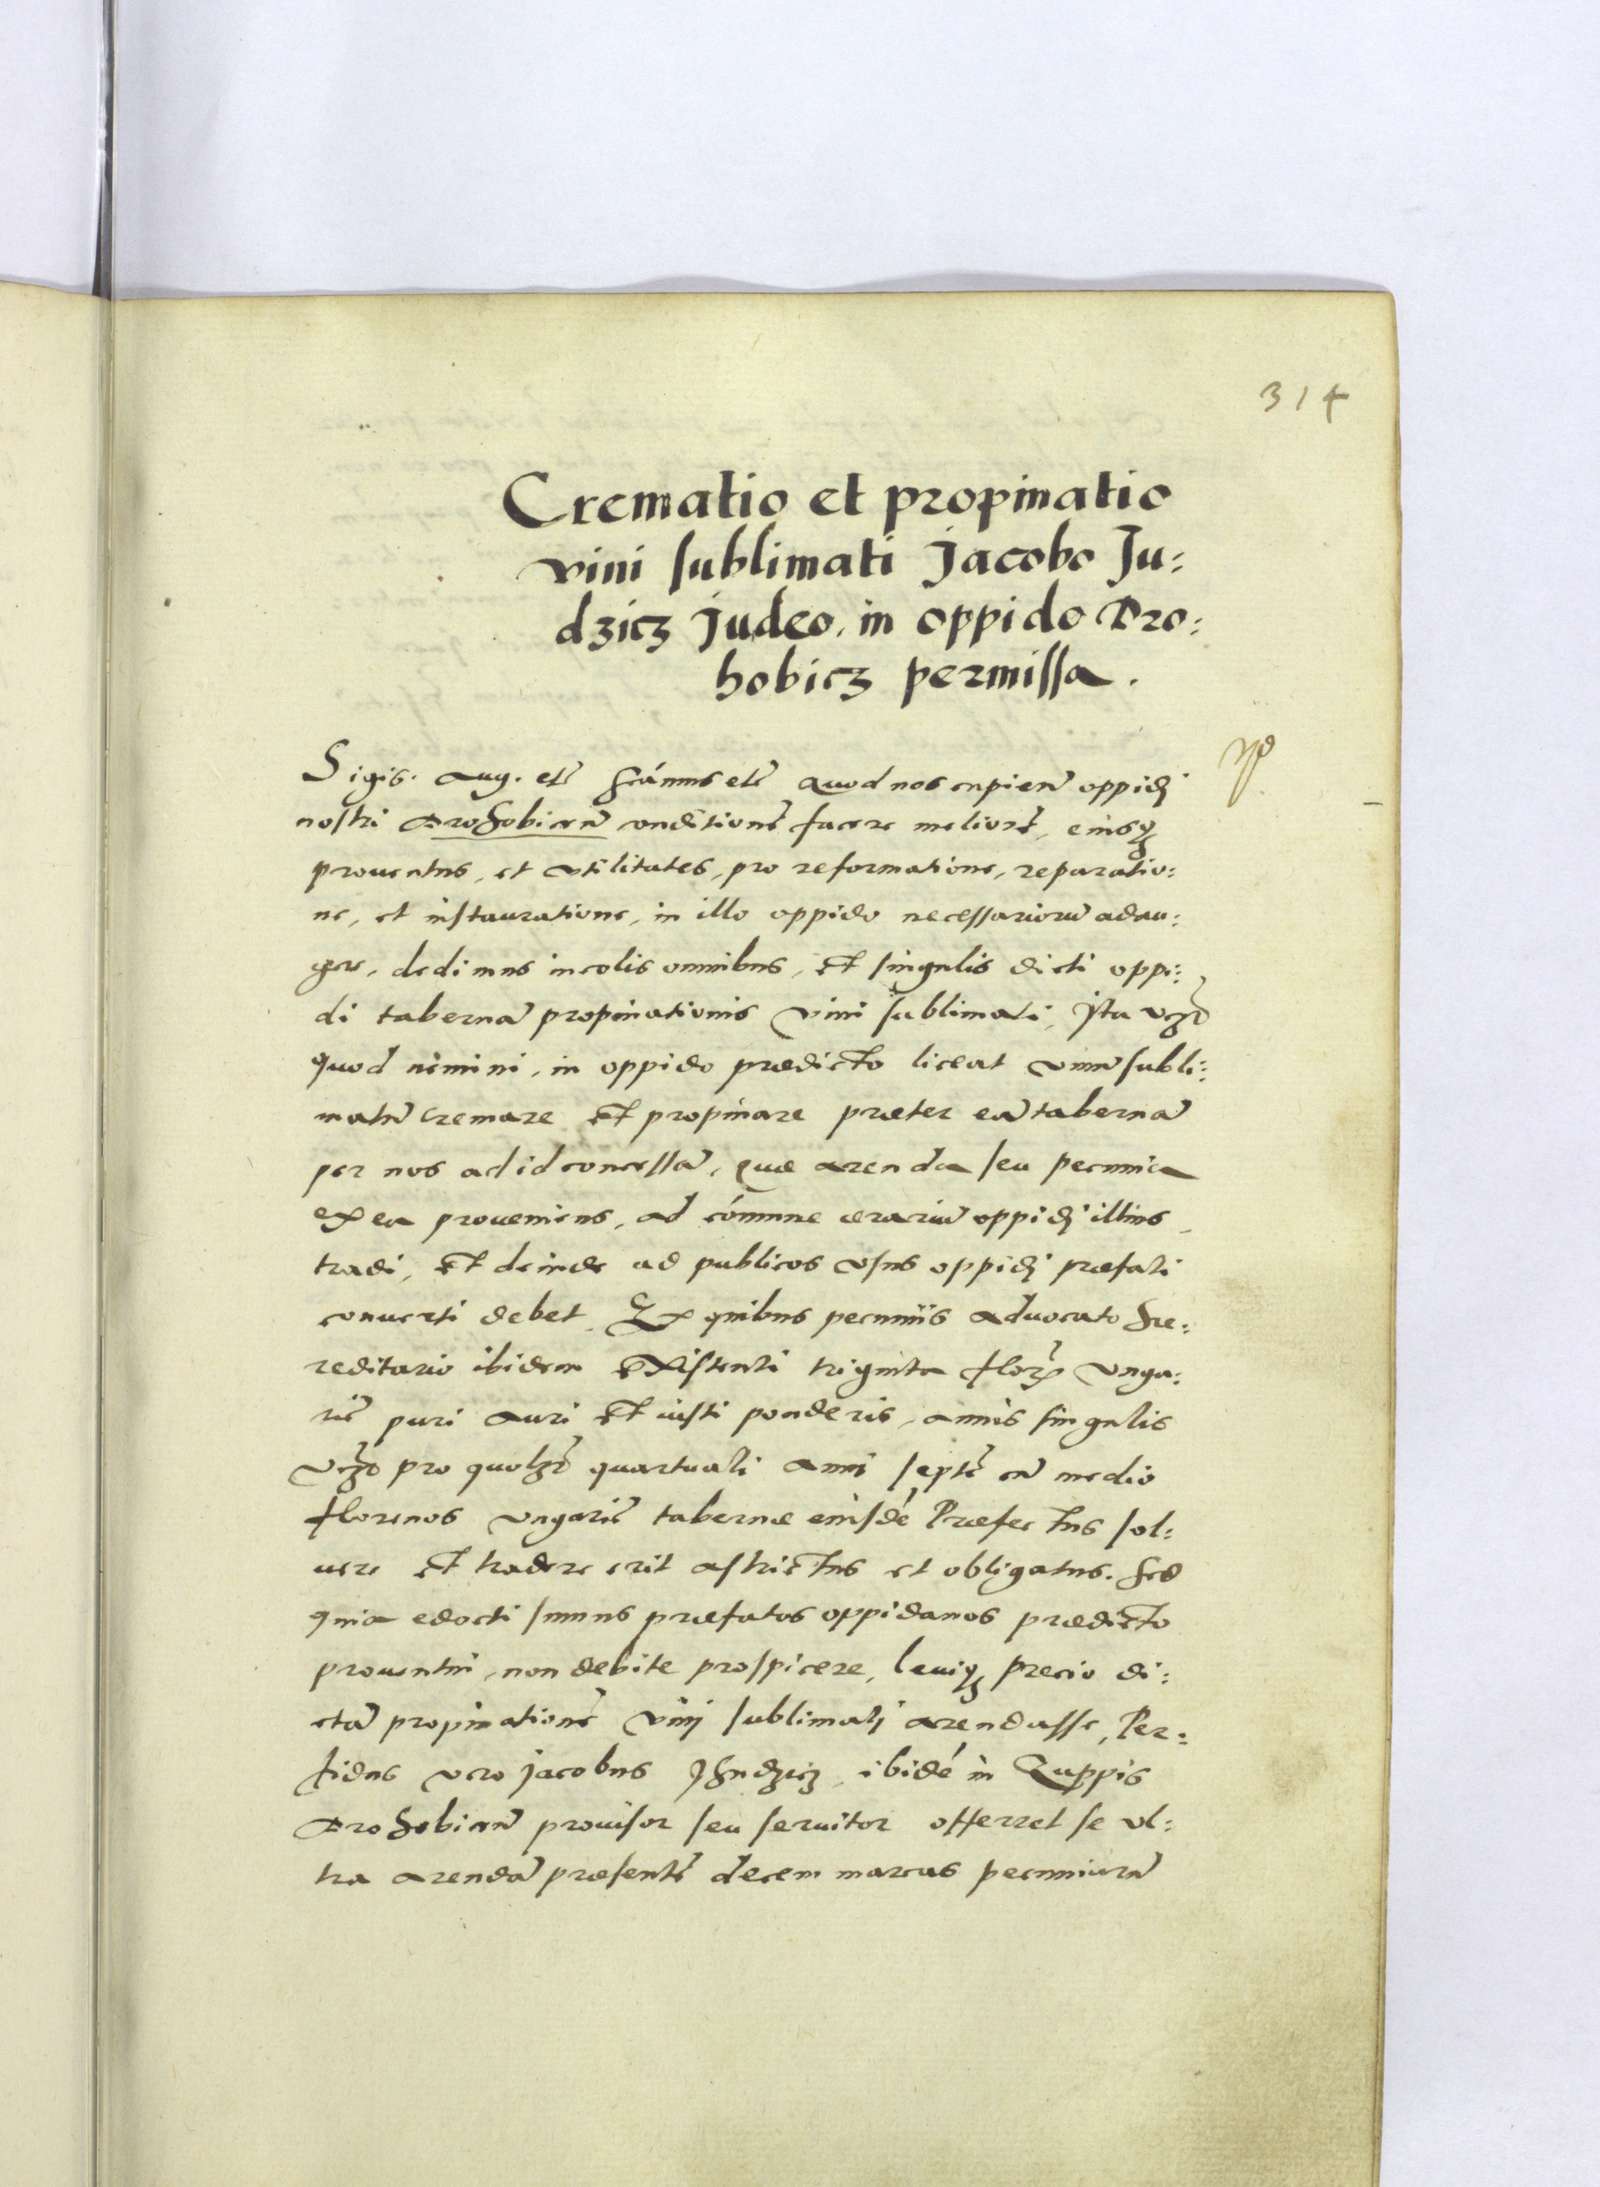 314
Crematio et propinatio
vini sublimati Jacobo Ju:
dzicz Judeo, in oppido Dro:
hobicz permissa.
Sigis. Aug. etc̃ Scámus etc̃ Quod nos cupien̄ oppidi
nostri Drohobicen̄ conditionē facere meliorē, eiusq3
prouentus, et vtilitates, pro reformatione, reparatio:
ne, et instauratione, in illo oppido necessariorū adau:
gere, dedimus incolis omnibus, et singulis dicti oppi:
di tabernā propinationis vini sublimati, Ita
quod nemini, in oppido prædicto liceat vinū subli:
matū cremare et propinare præter eā tabernā
per nos ad id concessā, quæ arenda seu pecunia
ex ea proueniens, ad cómune ærariū oppidi illius
tradi, et deinde ad publicos vsus oppidi præfati
conuerti debet. Ex quibus pecuniis aduocato hæ:
reditario ibidem existenti triginta flor̃ vnga:
ric̃ puri auri et iusti ponderis, annis singulis
pro quolz̃ quartuali anni septē cū medio
florenos vngaric̃ tabernæ eiusdé Præfectus sol:
uere et tradere erit astrictus et obligatus. Sed
quia edocti sumus præfatos oppidanos prædicto
prouentui, non debite prospicere, leuiq3 precio di:
ctā propinationē vini sublimati arendasse, Per:
fidus vero Jacobus Ihudzicz, ibidé in Zuppis
Drohobicen̄ prouisor seu seruitor offerret se vl:
tra arendā præsentē decem marcas pecuniarū